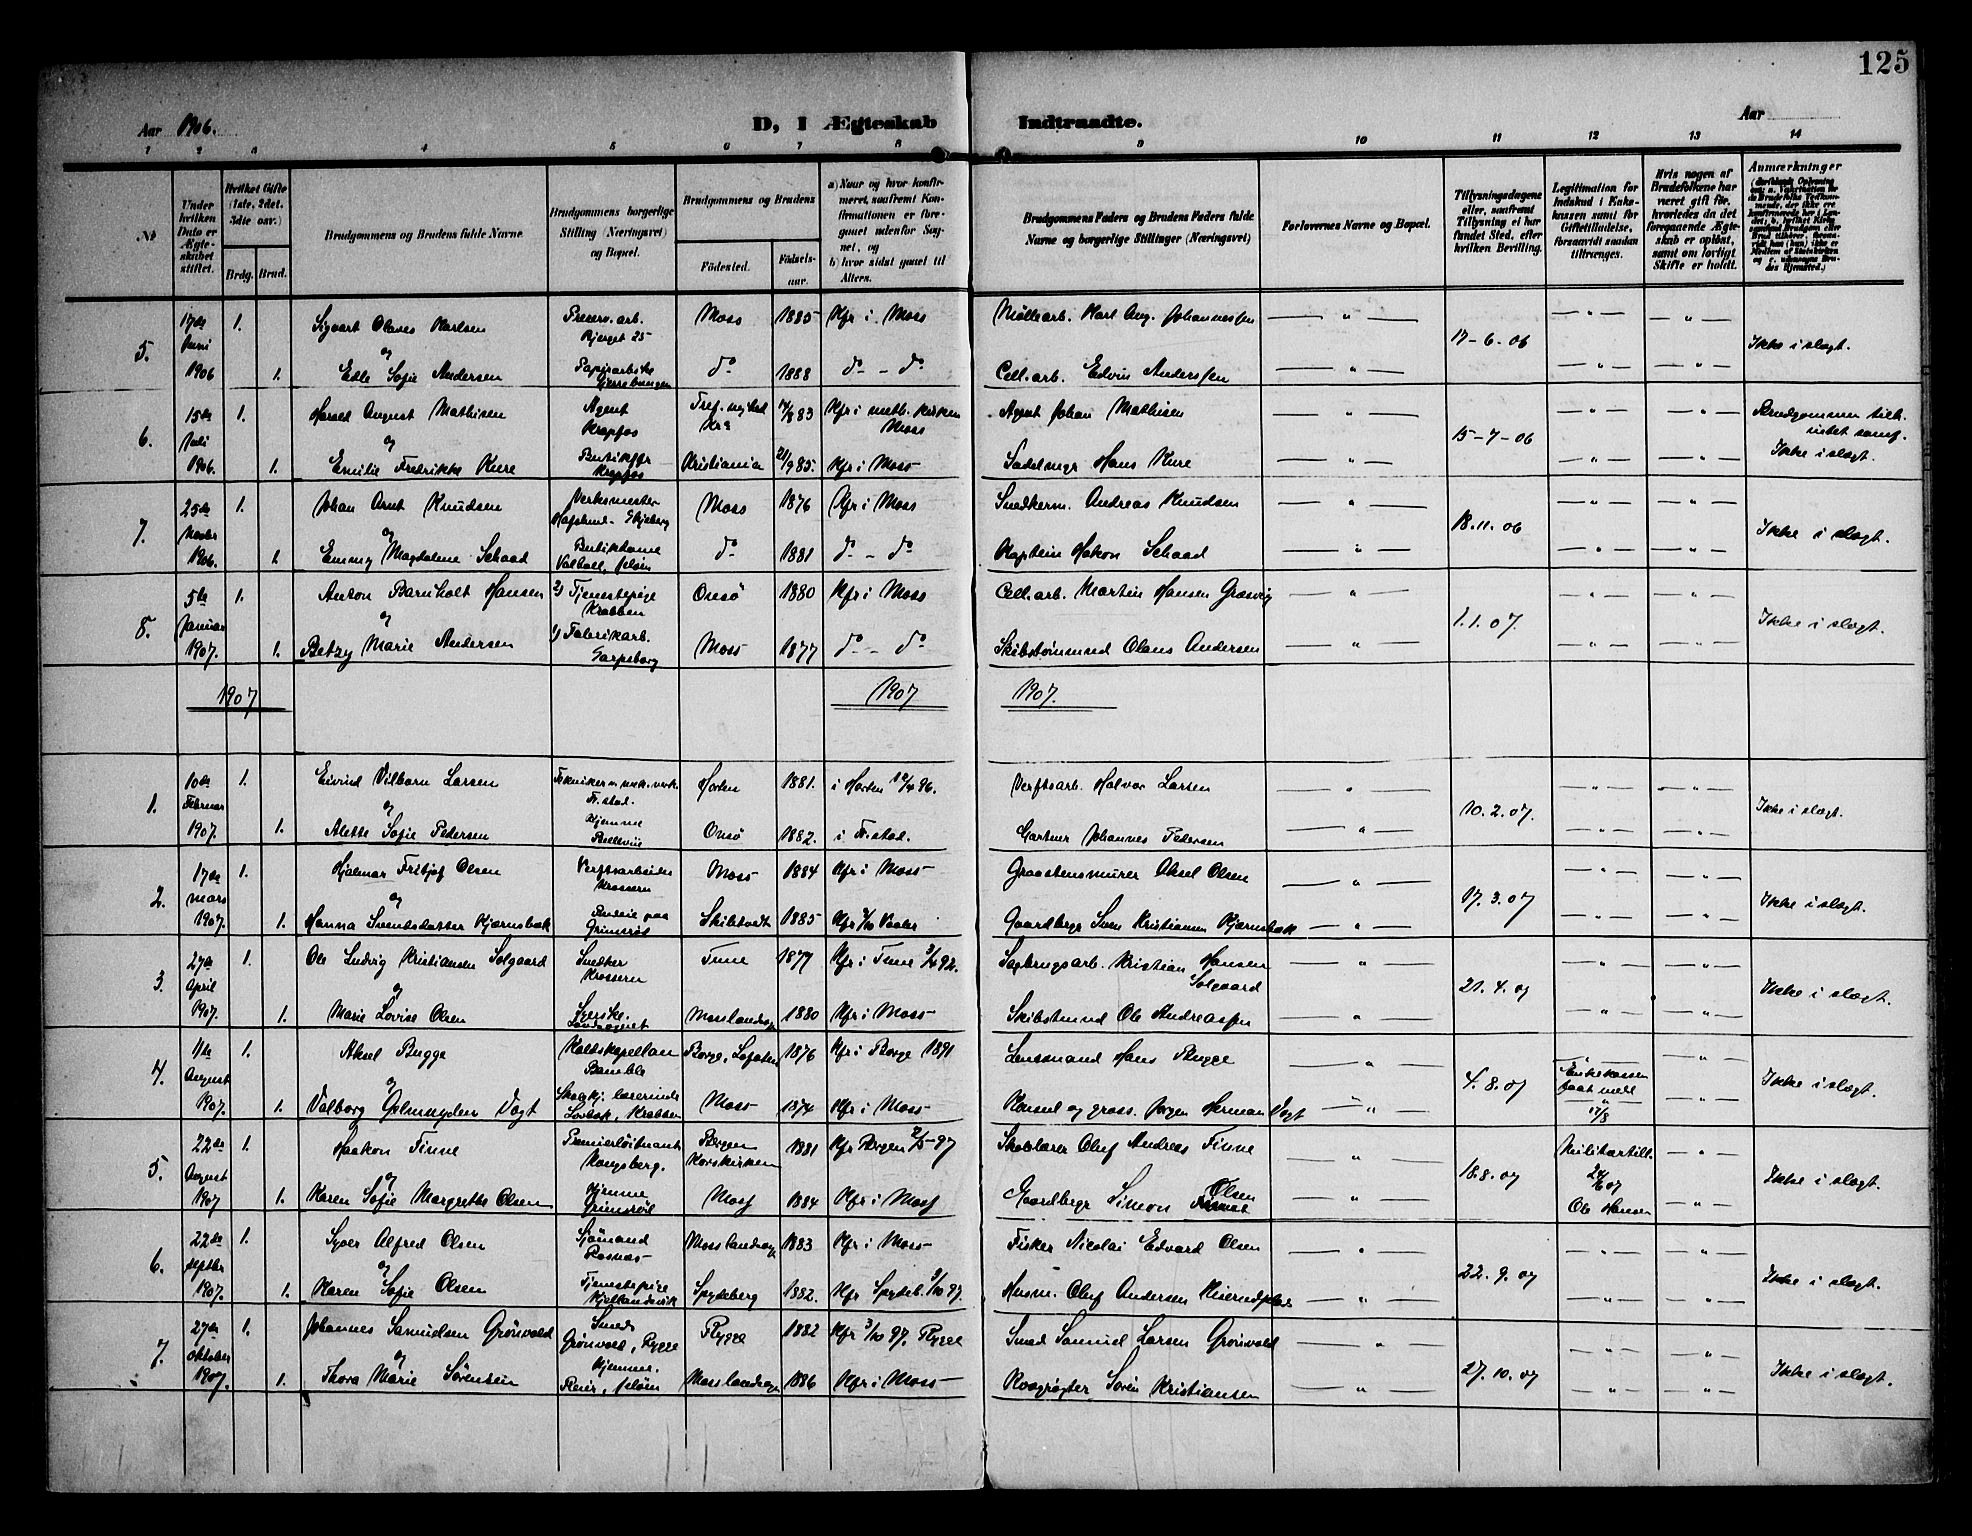 125
Aar 1906.
D, I Ægteskab Indtraadte.
Aar
1 2 3 4 5 6 7 8 9 10 11 12 13 14
№
Under hvilken Dato er Ægteskabet stiftet.
Hvilket Gifte (1ste, 2det, 3die osv.)
Brdg. Brud.
Brudgommens og Brudens fulde Navne
Brudgommens borgerlige Stilling (Næringsvei) og Bopæl.
Brudgommens og Brudens
Fødested. Fødselsaar.
a) Naar og hvor konfirmeret, saafremt Konfirmationen er foregaaet udenfor Sognet, og
b) hvor sidst gaaet til Alters.
Brudgommens Faders og Brudens Faders fulde Navne og borgerlige Stillinger (Næringsvei)
Forlovernes Navne og Bopæl.
Tillysningsdagene eller, saafremt Tillysning ei har fundet Sted, efter hvilken Bevilling.
Legitimation for Indskud i Enkekassen samt for Giftetilladelse, forsaavidt saadan tiltrænges.
Hvis nogen af Brudefolkene har været gift før, hvorledes da det foregaaende Ægteskab er opløst, samt om lovligt Skifte er holdt.
Anmærkninger
5. 17de Juni 1906 1. Sigvart Olaves Karlsen Preserv.arb. Bjerget 25 Moss 1885 Kfr i Moss Møllearb. Karl Aug. Johannessen 17-6-06 Ikke i slægt.
og
1. Edle Sofie Andersen Papirarbske 1888 do - do Cell.arb. Edvin Anderssen
6. 15de Juli 1906. 1. Harald August Mathisen Agent Krapfos 14/8 83 Kfr i meth. kirken Moss Agent Johan Mathisen 15-7-06 Ikke i slægt.
og
1. Emilie Fredrikke Kure Krapfos Kristiania 21/9 85. Kfr i Moss Sadelmgr Hans Kure
7. 25de Novbr 1906. 1. Johan Arnt Knudsen Verksmester Hafslund - Skjeberg Moss 1876 Kfr i Moss Snedkerm. Andreas Knudsen 18.11.06 Ikke i slægt.
og
1. Emmy Magdalene Schaad Butikdame Valhall, Jeløen do 1881 do - do Kaptein Hakon Schaad
8. 5te Januar 1907. 1. Anton Barnholt Hansen 2) Tjenestepige Krabben Onsø 1880 Kfr i Moss Cell.arb. Martin Hansen Græsvig 1.1.07. Ikke i slægt.
og
1. Betzy Marie Andersen 1) Fabrikarb. Sarpsborg Moss 1877 do - do Skibstømmmd Olaus Andersen
1907 1907 1907.
1. 10de Februar 1907. 1. Eivind Vilbarn Larsen Tekniker m. mek. verk. Fr.stad. Horten 1881. i Horten 10/4 96. Verftsarb. Halvor Larsen 10.2.07. Ikke i slægt.
og
1. Alette Sofie Pedersen Hjemme Bellevue Onsø 1882. i Fr.stad. Gartner Johannes Pedersen
2. 17de mars 1907. 1. Hjalmar Fritjof Olsen Verftsarbeider Krossern Moss 1884 Kfr i Moss Graastensmurer Aksel Olsen 17.3.07 Ikke i slægt.
og
1. Hanna Svendsdatter Kjærnsbæk Budeie paa Grimsrød Skibtvedt 1885 Kfr 7/10 Vaaler Gaardbrgr Sven Kristiansen Kjærnsbæk
3. 27de April 1907. 1. Ole Ludvig Kristiansen Solgaard Snedker Krossern Tune 1877 Kfr i Tune 3/4 92. Sagbrugsarb. Kristian Hansen Solgaard 21.4.07 Ikke i slægt.
og
1. Marie Lovise Olsen Syerske. Landsognet Moss landsogn 1880 Kfr i Moss Skibstmmd Ole Andreassen
4. 11te August 1907. 1. Aksel Bugge Residskapellan Bamble Borge, Lofoten 1876 Kfr i Borge 1891 Lensmand Hans Bugge 4.8.07 Enkekassen faat meld 17/8 Ikke i slægt.
og
1. Valborg Gelmuyden Vogt Krabben Moss 1874 Kfr i Moss Konsul og gross. Jørgen Herman Vogt
5. 22de August 1907 1. Haakon Finne Premierløitnant Kongsberg. Bergen Korskirken 1881 Kfr Bergen 2/5-97 Skolelærer Oluf Andreas Finne 18.8.07 Militærtill. Ole Hansen Ikke i slægt.
og
1. Karen Sofie Margrethe Olsen Hjemme Grimsrød Moss 1884 Kfr i Moss Gaardbrgr Simon Olsen
6. 22de septbr 1907. 1. Syver Alfred Olsen Sjømand Rosnæs Moss landsogn 1883 Kfr i Moss Fisker Nicolai Edvard Olsen 22.9.07 Ikke i slægt.
og
1. Karen Sofie Olsen Tjenestepige Kjellandsvik Spydeberg 1882. Kfr Spydeb. 3/10 97. Husm. Oluf Andersen
7. 27de oktober 1907. 1. Johannes Samuelsen Grønvold Smed Grønvold, Rygge Rygge 1882 Kfr 3/10 97. Rygge Smed Samuel Larsen Grønvold 27.10.07 Ikke i slægt.
og
1. Thora Marie Sørensen Hjemme. Reier, Jeløen Moss landsogn 1886 Kfr i Moss Røgter Søren Kristiansen